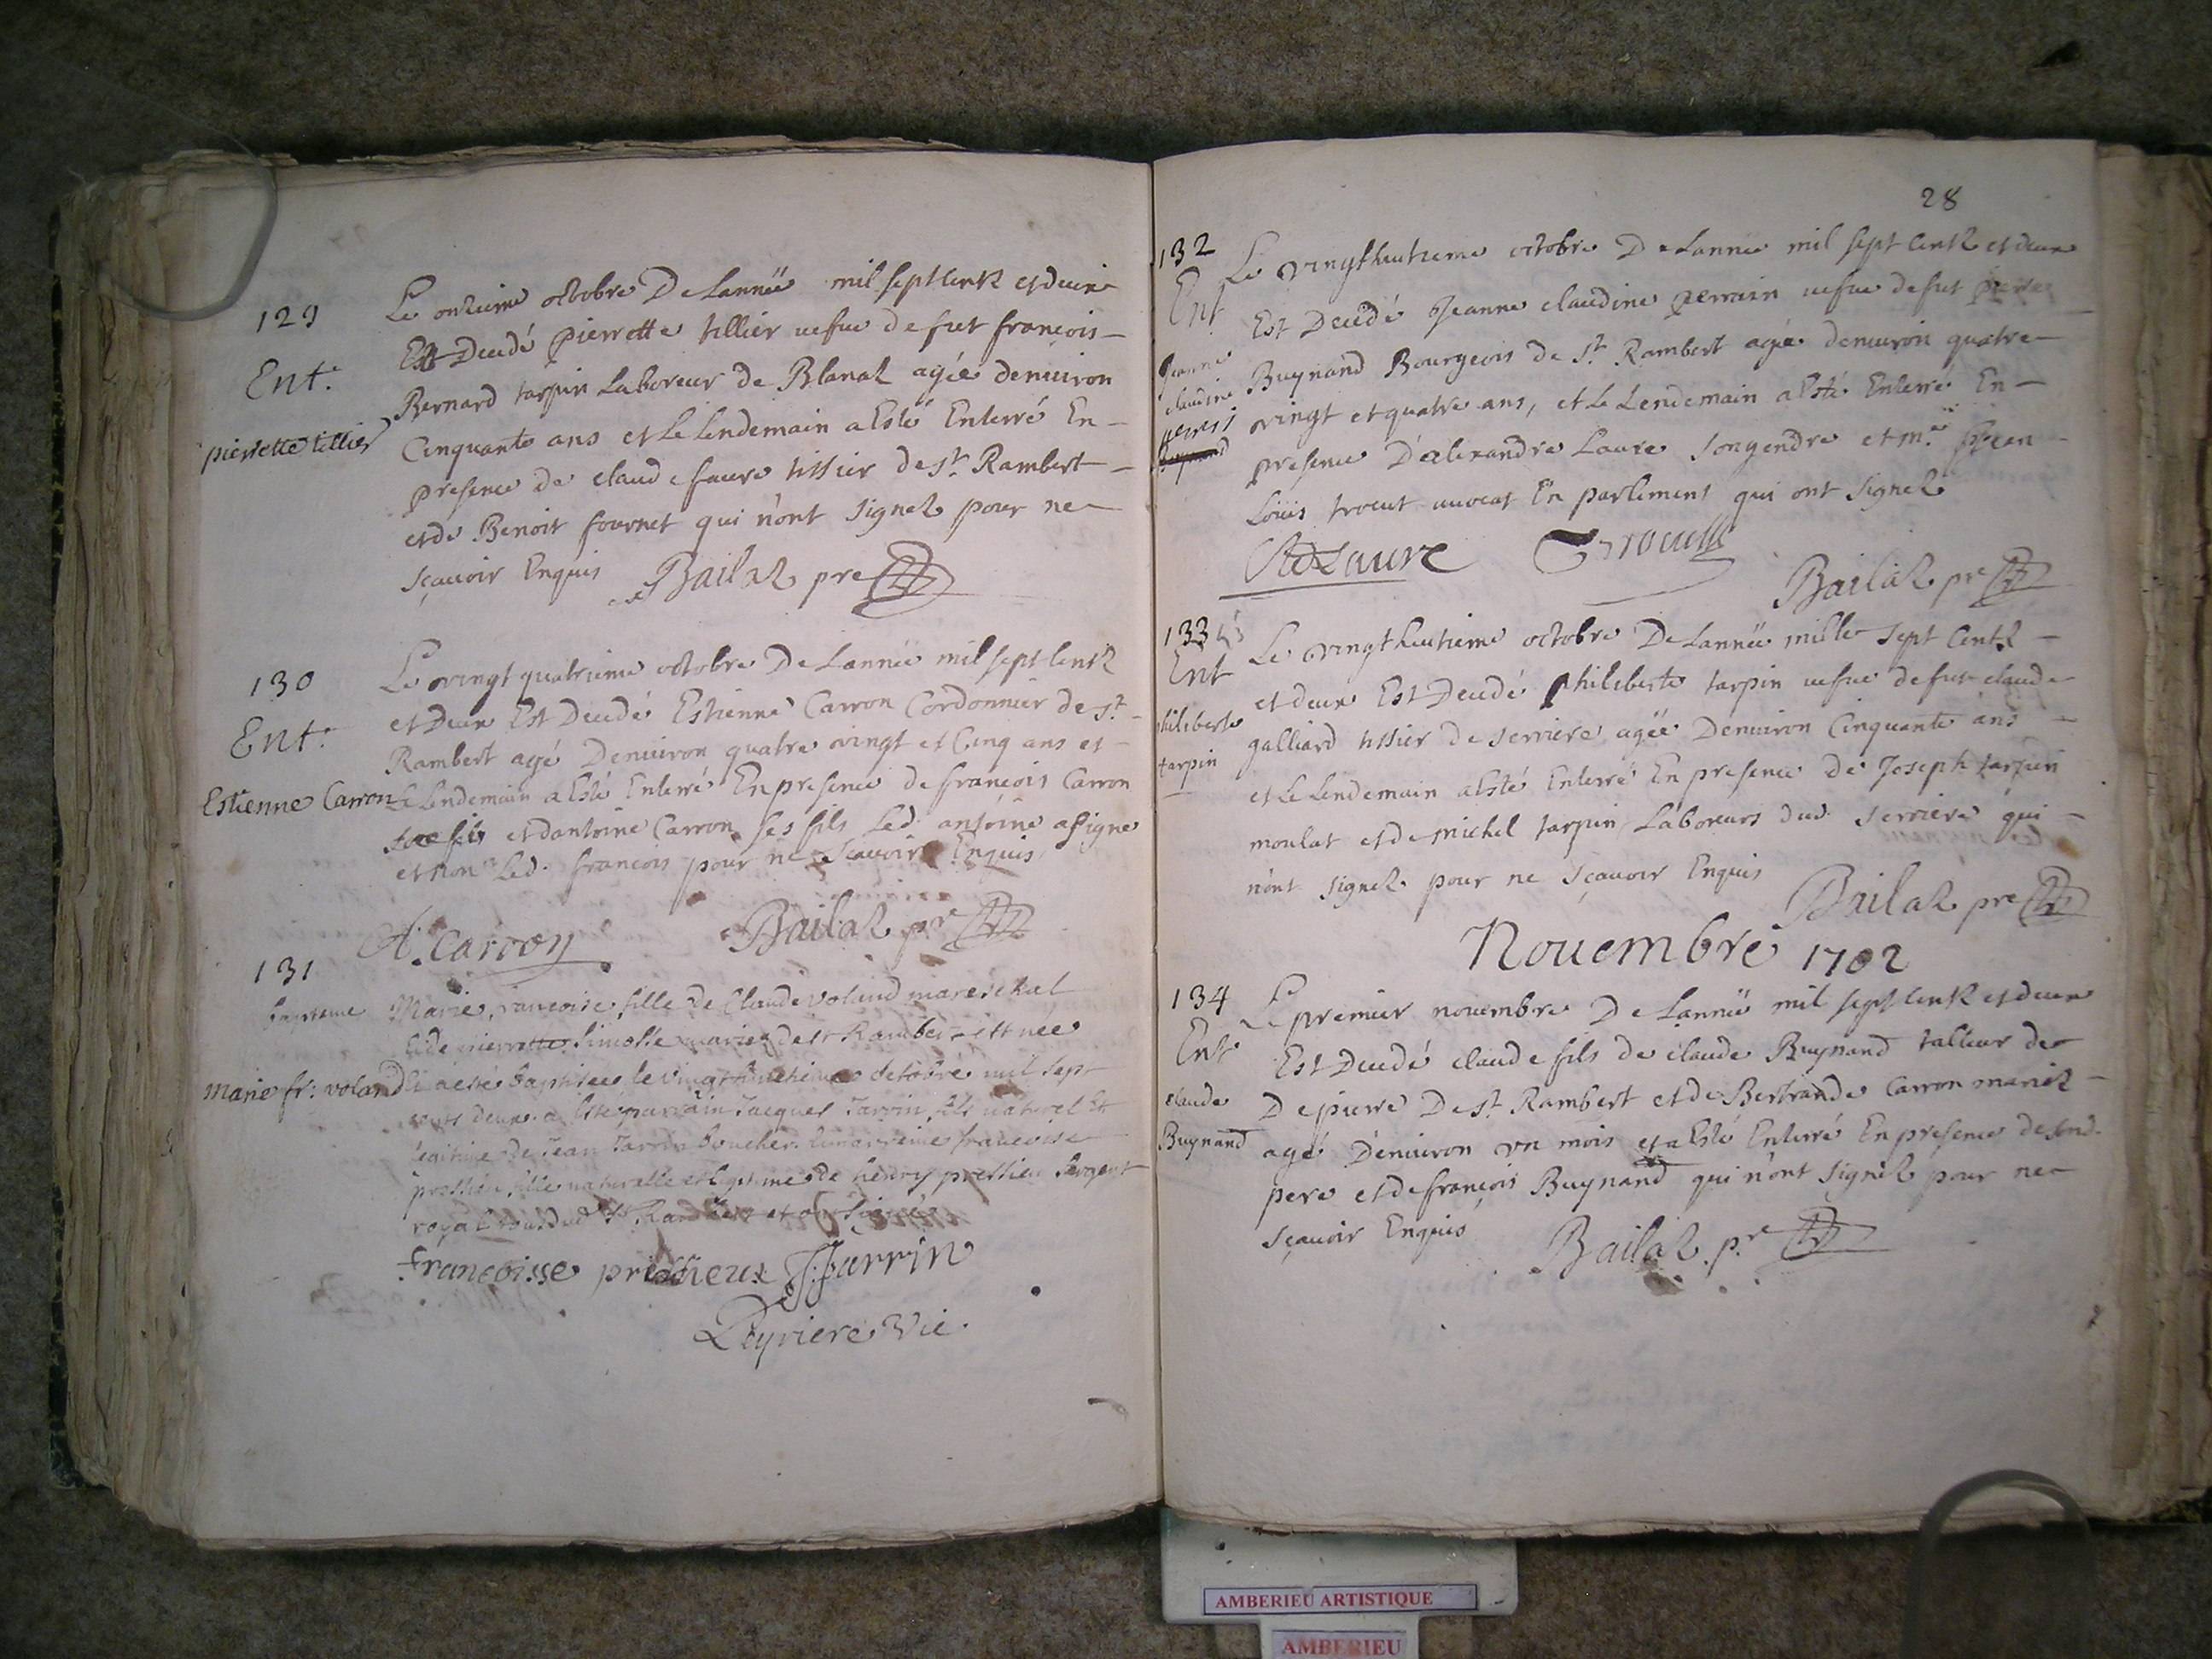 129
Ent.
pierrette tillier
Le onzieme octobre De Lannéé mil sept Centz et deux
Est Decedé pierrette tillier vefue de fut françois
Bernard tarpin Laboreur de Blanaz agéé denuiron
Cinquante ans et Le lendemain a Esté Enterré En
presence de claude faure tissier de St Rambert
et de Benoit fournet qui n'ont signez pour ne
sçauoir Enquis Bailaz pre
130
Ent.
Estienne Carron
Le vingt quatrieme octobre De Lannéé mil sept Centz
et Deux Est Decedé Estienne Carron Cordonnier de St
Rambert agé Denuiron quatre vingt et Cinq ans et
Le Lendemain a Esté Enterré En presence de francois Carron
et dantoine Carron ses fils Led. antoine a signe
et non Led. francois pour ne sçauoir Enquis
A. Carron Bailaz pr
131
bapteme
Marie fr: voland
Marie francoise fille de Claude voland mareschal
et de pierrette simosse mariez de st Rambert est née
et a esté baptisee le vingthuictieme octobre mil sept
cents deux. a esté parrain Jacques Jarrin fils naturel et
legitime de Jean Jarrin boucher. la marreine francoise
pressieu fille naturelle et legitime de henry pressieu sergent
royal dud St Rambert et ont signé
francoisse pressieux J Jarrin
Peyriere vic.
28
132
Ent
Jeanne
claudine
perrin
Le vingt huitieme octobre De Lannéé mil sept Centz et deux
Est Decedé Jeanne claudine perrin vefue de fut
Buynand Bourgeois de St Rambert agéé denuiron quatre
vingt et quatre ans, et Le Lendemain a Esté Enterré En
presence D'alexandre Laure son gendre et Mre Jean
Loüis trocut auocat En parlement qui ont signez
Laure Trocut
Bailaz pr
133
Ent
philiberte
tarpin
Le vingt huitieme octobre De Lannéé mille sept Centz
et deux Est Decedé philiberte tarpin vefue de fut claude
galliard tissier de serriere agéé Denuiron Cinquante ans
et Le Lendemain a Esté Enterré En presence de Joseph tarpin
moulat et de michel tarpin Laboreurs dud. serriere qui
n'ont signez pour ne sçauoir Enquis
Bailaz pre
Nouembre 1702
134
Ent
claude
Buynand
Le premier nouembre De Lannéé mil sept Centz et deux
Est Decedé claude fils de claude Buynand talieur de
De pierre De St Rambert et de Bertrande Carron mariez
agé Denuiron vn mois et a Esté Enterré En presence de sond.
pere et de françois Buynand qui n'ont signéz pour ne
sçauoir Enquis Bailaz pre
AMBERIEU ARTISTIQUE
AMBERIEU